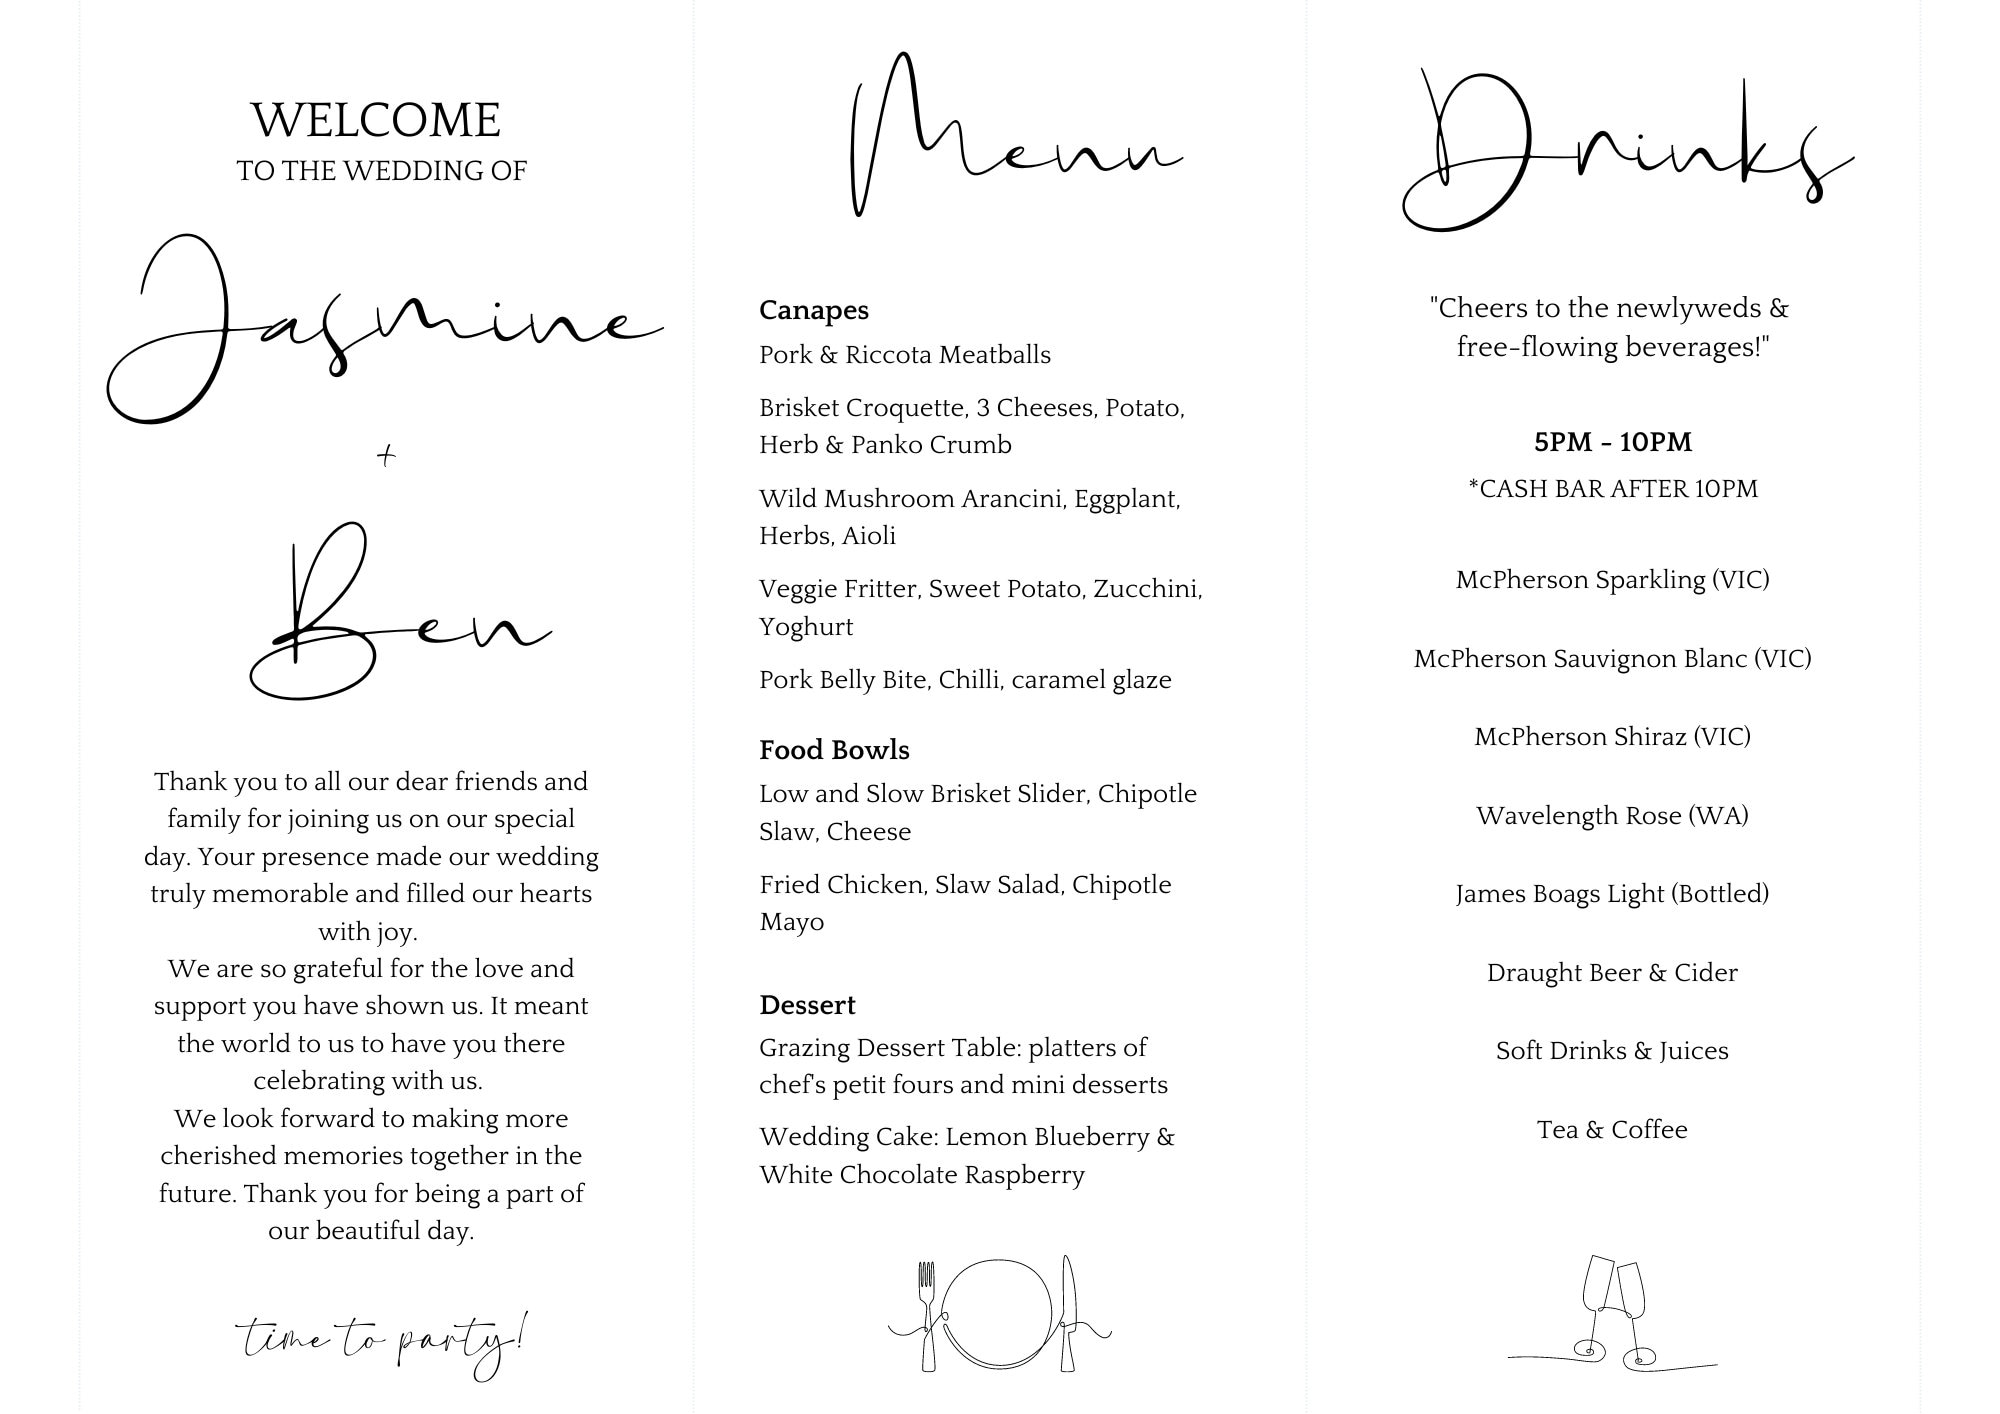 WELCOME
TO THE WEDDING OF
Jasmine
+
Ben
Thank you to all our dear friends and
family for joining us on our special
day. Your presence made our wedding
truly memorable and filled our hearts
with joy.
We are so grateful for the love and
support you have shown us. It meant
the world to us to have you there
celebrating with us.
We look forward to making more
cherished memories together in the
future. Thank you for being a part of
our beautiful day.
time to party!
Menu
Canapes
Pork & Riccota Meatballs
Brisket Croquette, 3 Cheeses, Potato,
Herb & Panko Crumb
Wild Mushroom Arancini, Eggplant,
Herbs, Aioli
Veggie Fritter, Sweet Potato, Zucchini,
Yoghurt
Pork Belly Bite, Chilli, caramel glaze
Food Bowls
Low and Slow Brisket Slider, Chipotle
Slaw, Cheese
Fried Chicken, Slaw Salad, Chipotle
Mayo
Dessert
Grazing Dessert Table: platters of
chef's petit fours and mini desserts
Wedding Cake: Lemon Blueberry &
White Chocolate Raspberry
Drinks
"Cheers to the newlyweds &
free-flowing beverages!"
5PM - 10PM
*CASH BAR AFTER 10PM
McPherson Sparkling (VIC)
McPherson Sauvignon Blanc (VIC)
McPherson Shiraz (VIC)
Wavelength Rose (WA)
James Boags Light (Bottled)
Draught Beer & Cider
Soft Drinks & Juices
Tea & Coffee